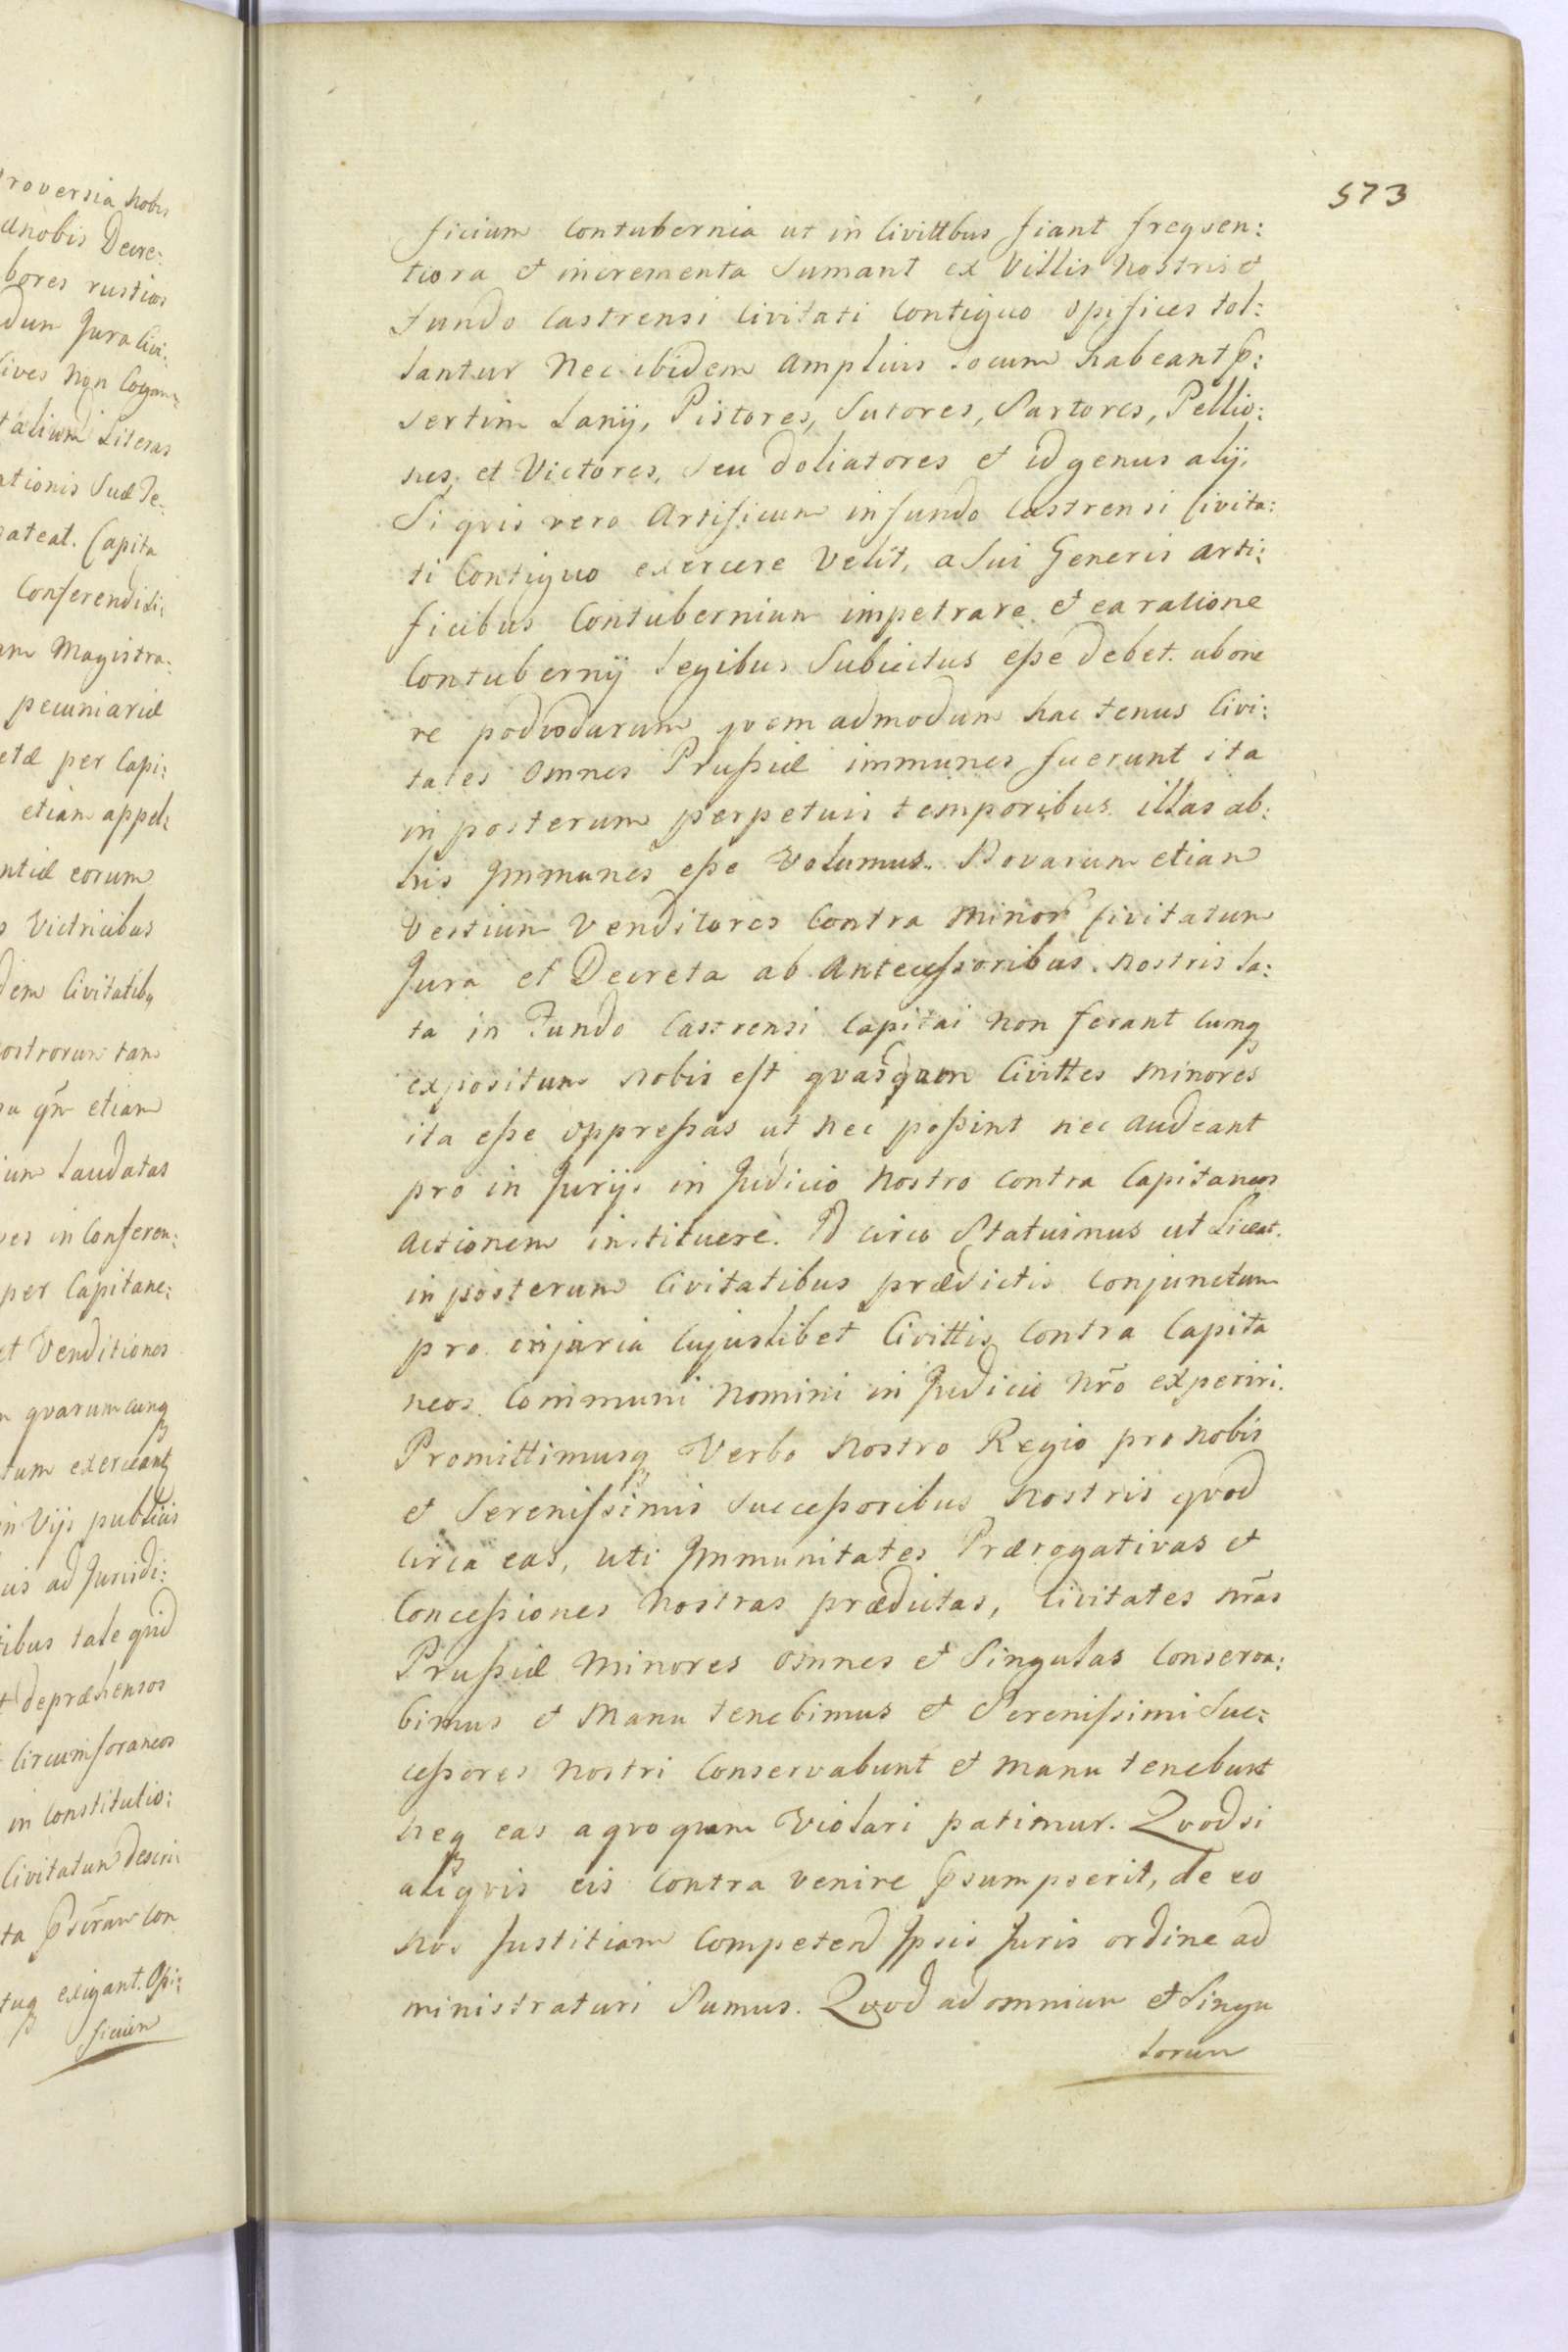 573
ficium Contubernia ut in Civittbus fiant freqven:
tiora et incrementa Sumant ex Villis Nostris et
Fundo Castrensi Civitati Contiguo Opifices tol:
lantur Nec ibidem Amplius locum habeant p̄:
sertim Lanij, Pistores, Sutores, Sartores, Pellio:
nes, et Victores, Seu doliatores et id genus alij.
Si qvis vero Artificum in fundo Castrensi Civita:
ti Contiguo exercere Velit, a Sui Generis arti:
ficibus Contubernium impetrare et ea ratione
Contubernij legibus Subiectus eße debet. ab one
re podvodarum qvemadmodum hactenus Civi:
tates Omnes Prußiæ immunes fuerunt ita
in posterum perpetuis temporibus illas ab:
his Immunes eße Volumus. Novarum etiam
Vestium Venditores Contra Minor̄ Civitatum
Jura et Decreta ab Anteceßoribus nostris la:
ta in Fundo Castrensi Capitai non ferant Cumq
expositum Nobis est qvasdam Civittes Minores
ita eße Oppreßas ut Nec poßint nec Audeant
pro in Jurijs in Judicio Nostro Contra Capitaneos
Actionem instituere. Id circo Statuimus ut Liceat.
in posterum Civitatibus prædictis Conjunctum
pro injuria Cujuslibet Civittis Contra Capita
neos Communi Nomini in Judicio Nr̄o experiri.
Promittimusq Verbo Nostro Regio pro Nobis
et Serenißimis Succeßoribus Nostris qvod
Circa eas, uti Immunitates Prærogativas et
Conceßiones Nostras prædictas, Civitates Nr̄as
Prußiæ Minores Omnes et Singulas Conserva:
bimus et Manu tenebimus et Serenißimi Suc:
ceßores Nostri Conservabunt et Manu tenebunt
Neq eas a qvoquam Violari patimur. Qvodsi
aliqvis eis Contra venire p̄sumpserit, de eo
Nos Justitiam Competend Ipsis Juris ordine ad
ministraturi Sumus. Qvod ad omnium et Singu
lorum
roversia Nobis
a nobis Decre:
bores rusticos
dum Jura Civi:
Cives Non Cogan:
talium Literas
ationis Suæ De:
pateat. Capita
Conferendi Li:
Magistra:
pecuniariæ
per Capi:
etiam appel:
ntiæ eorum
Victricibus
dem Civitatibq
ostrorum tam
qm̄ etiam
Laudatas
in Conferen:
per Capitane:
et Venditiones
qvarumcunq
tum exerceant
in Vijs publicis
ad Jurisdi:
ibus tale quid
depræhensos
Circumforaneos
in Constitutio:
Civitatum Descri:
ta p̄sentum Con
exigant. Opi:
ficium